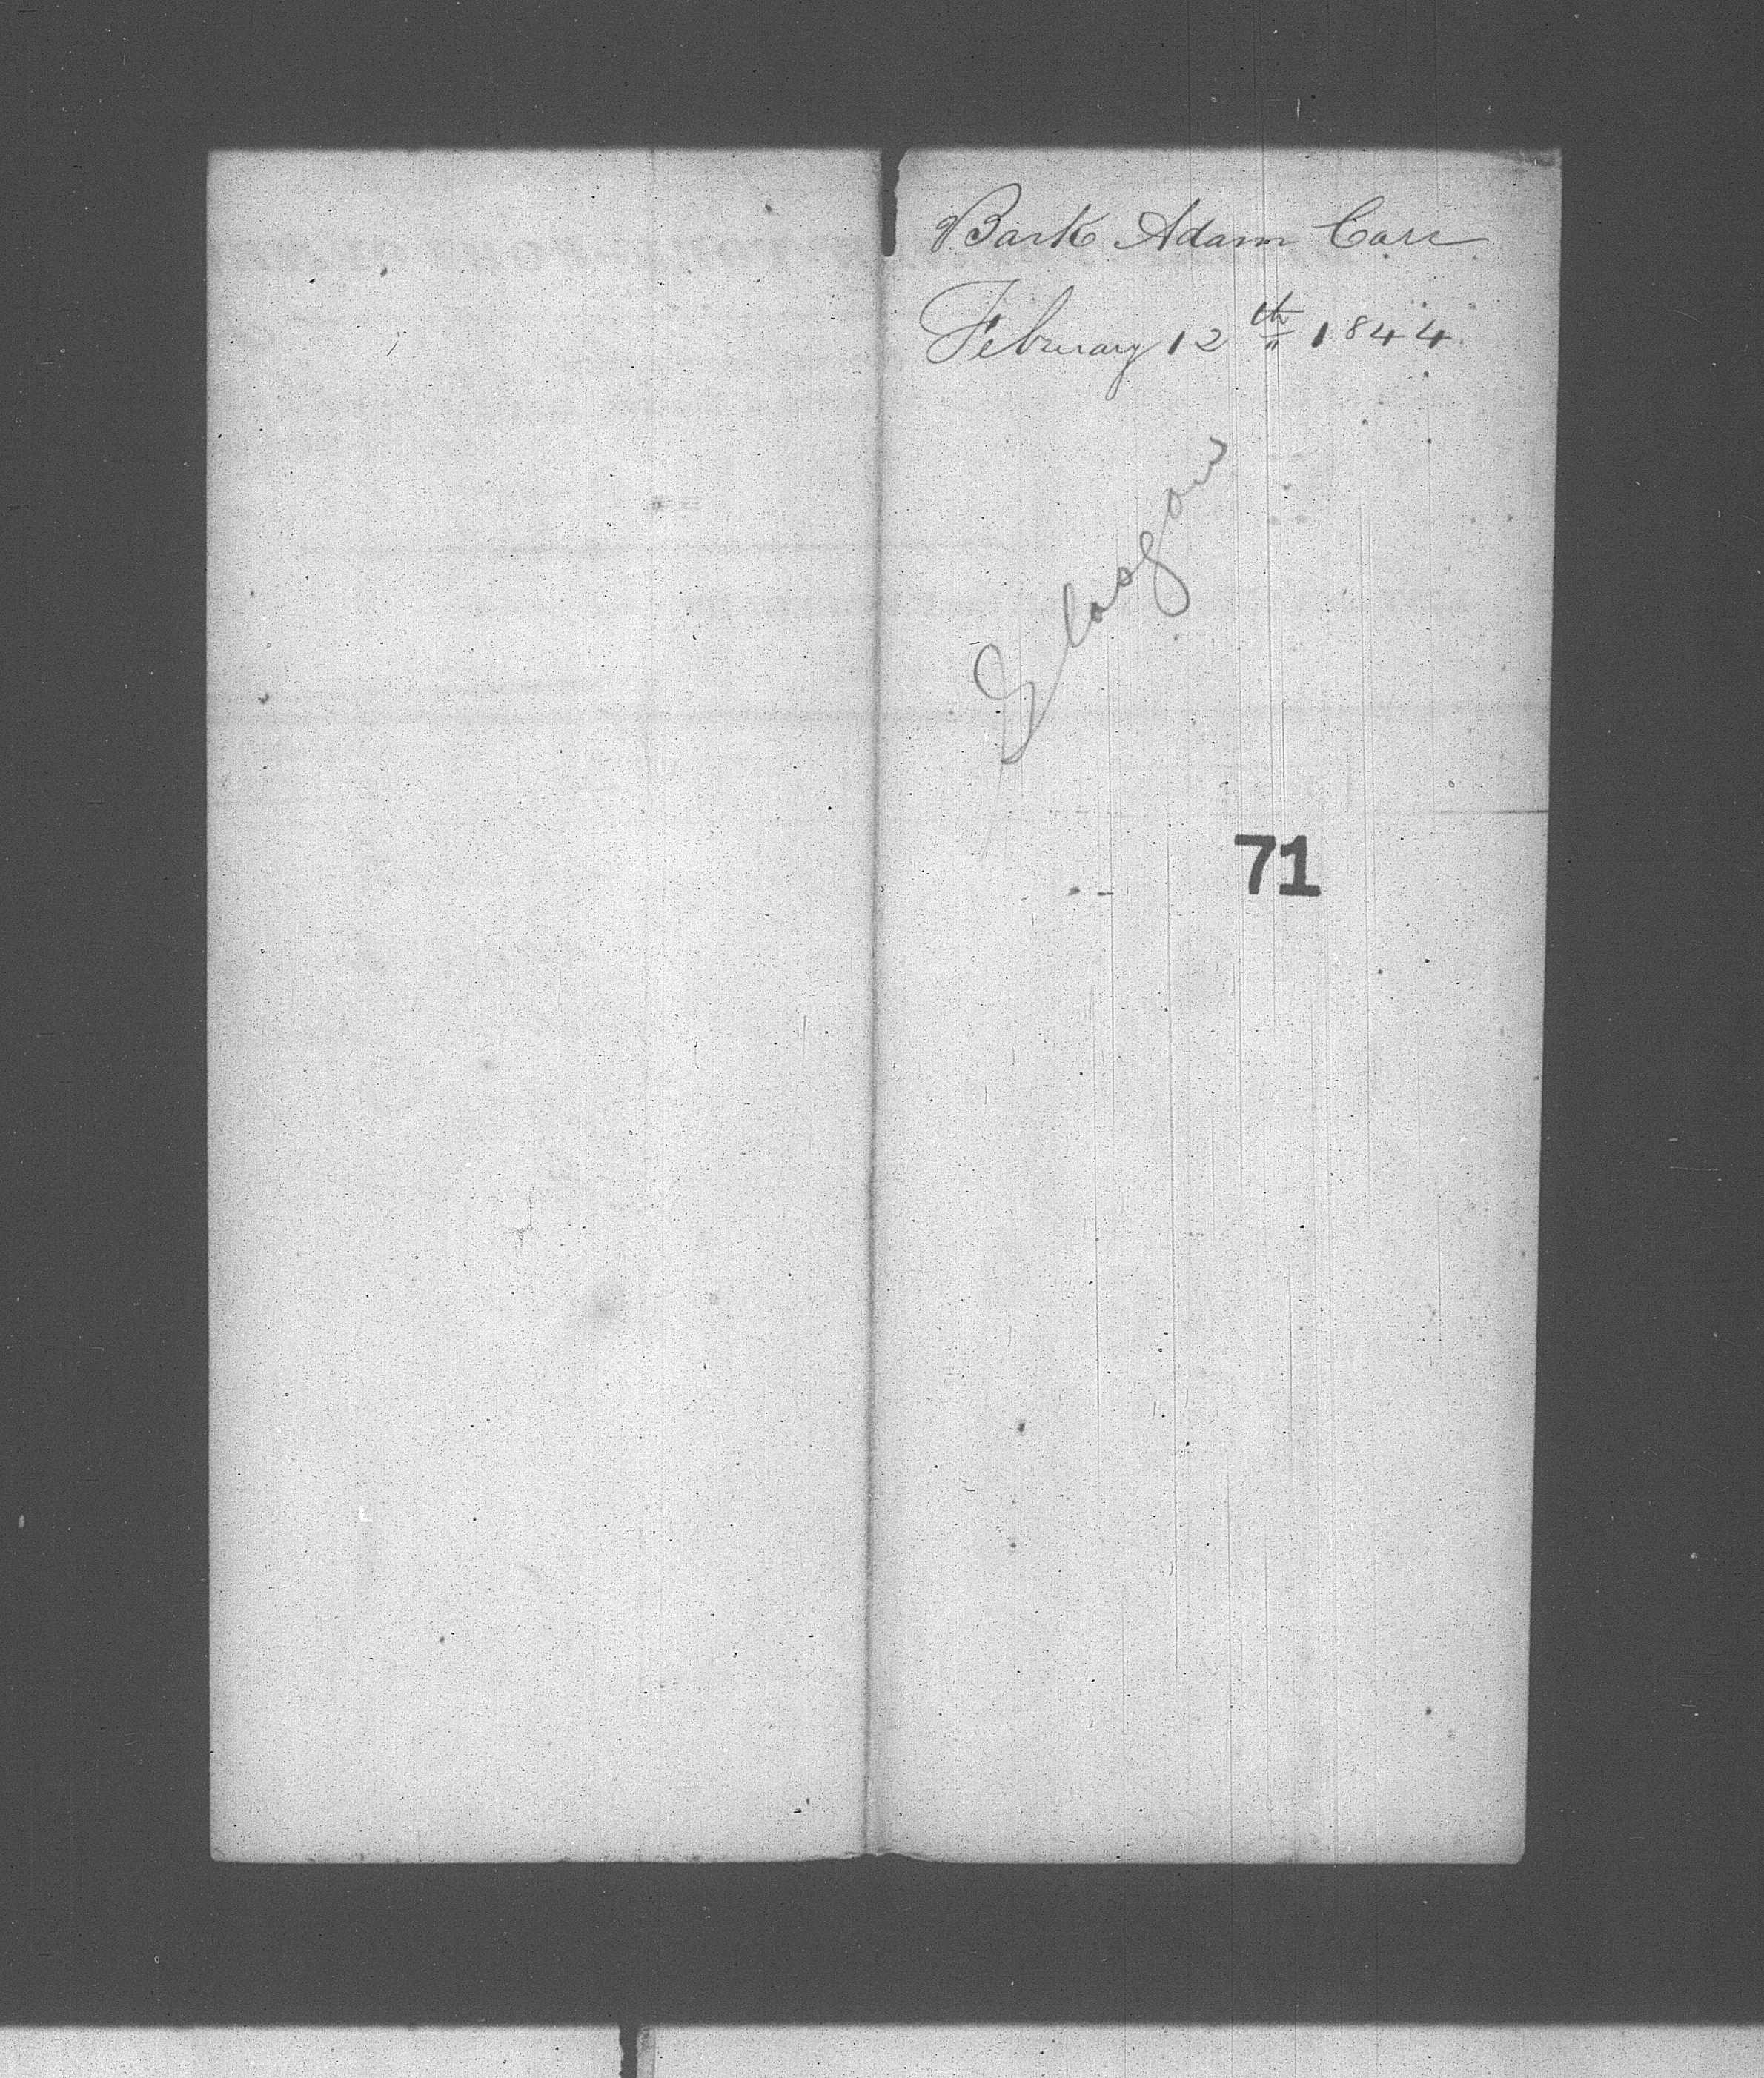 Bark Adam Carr
February 12th 1844
Glasgow
71